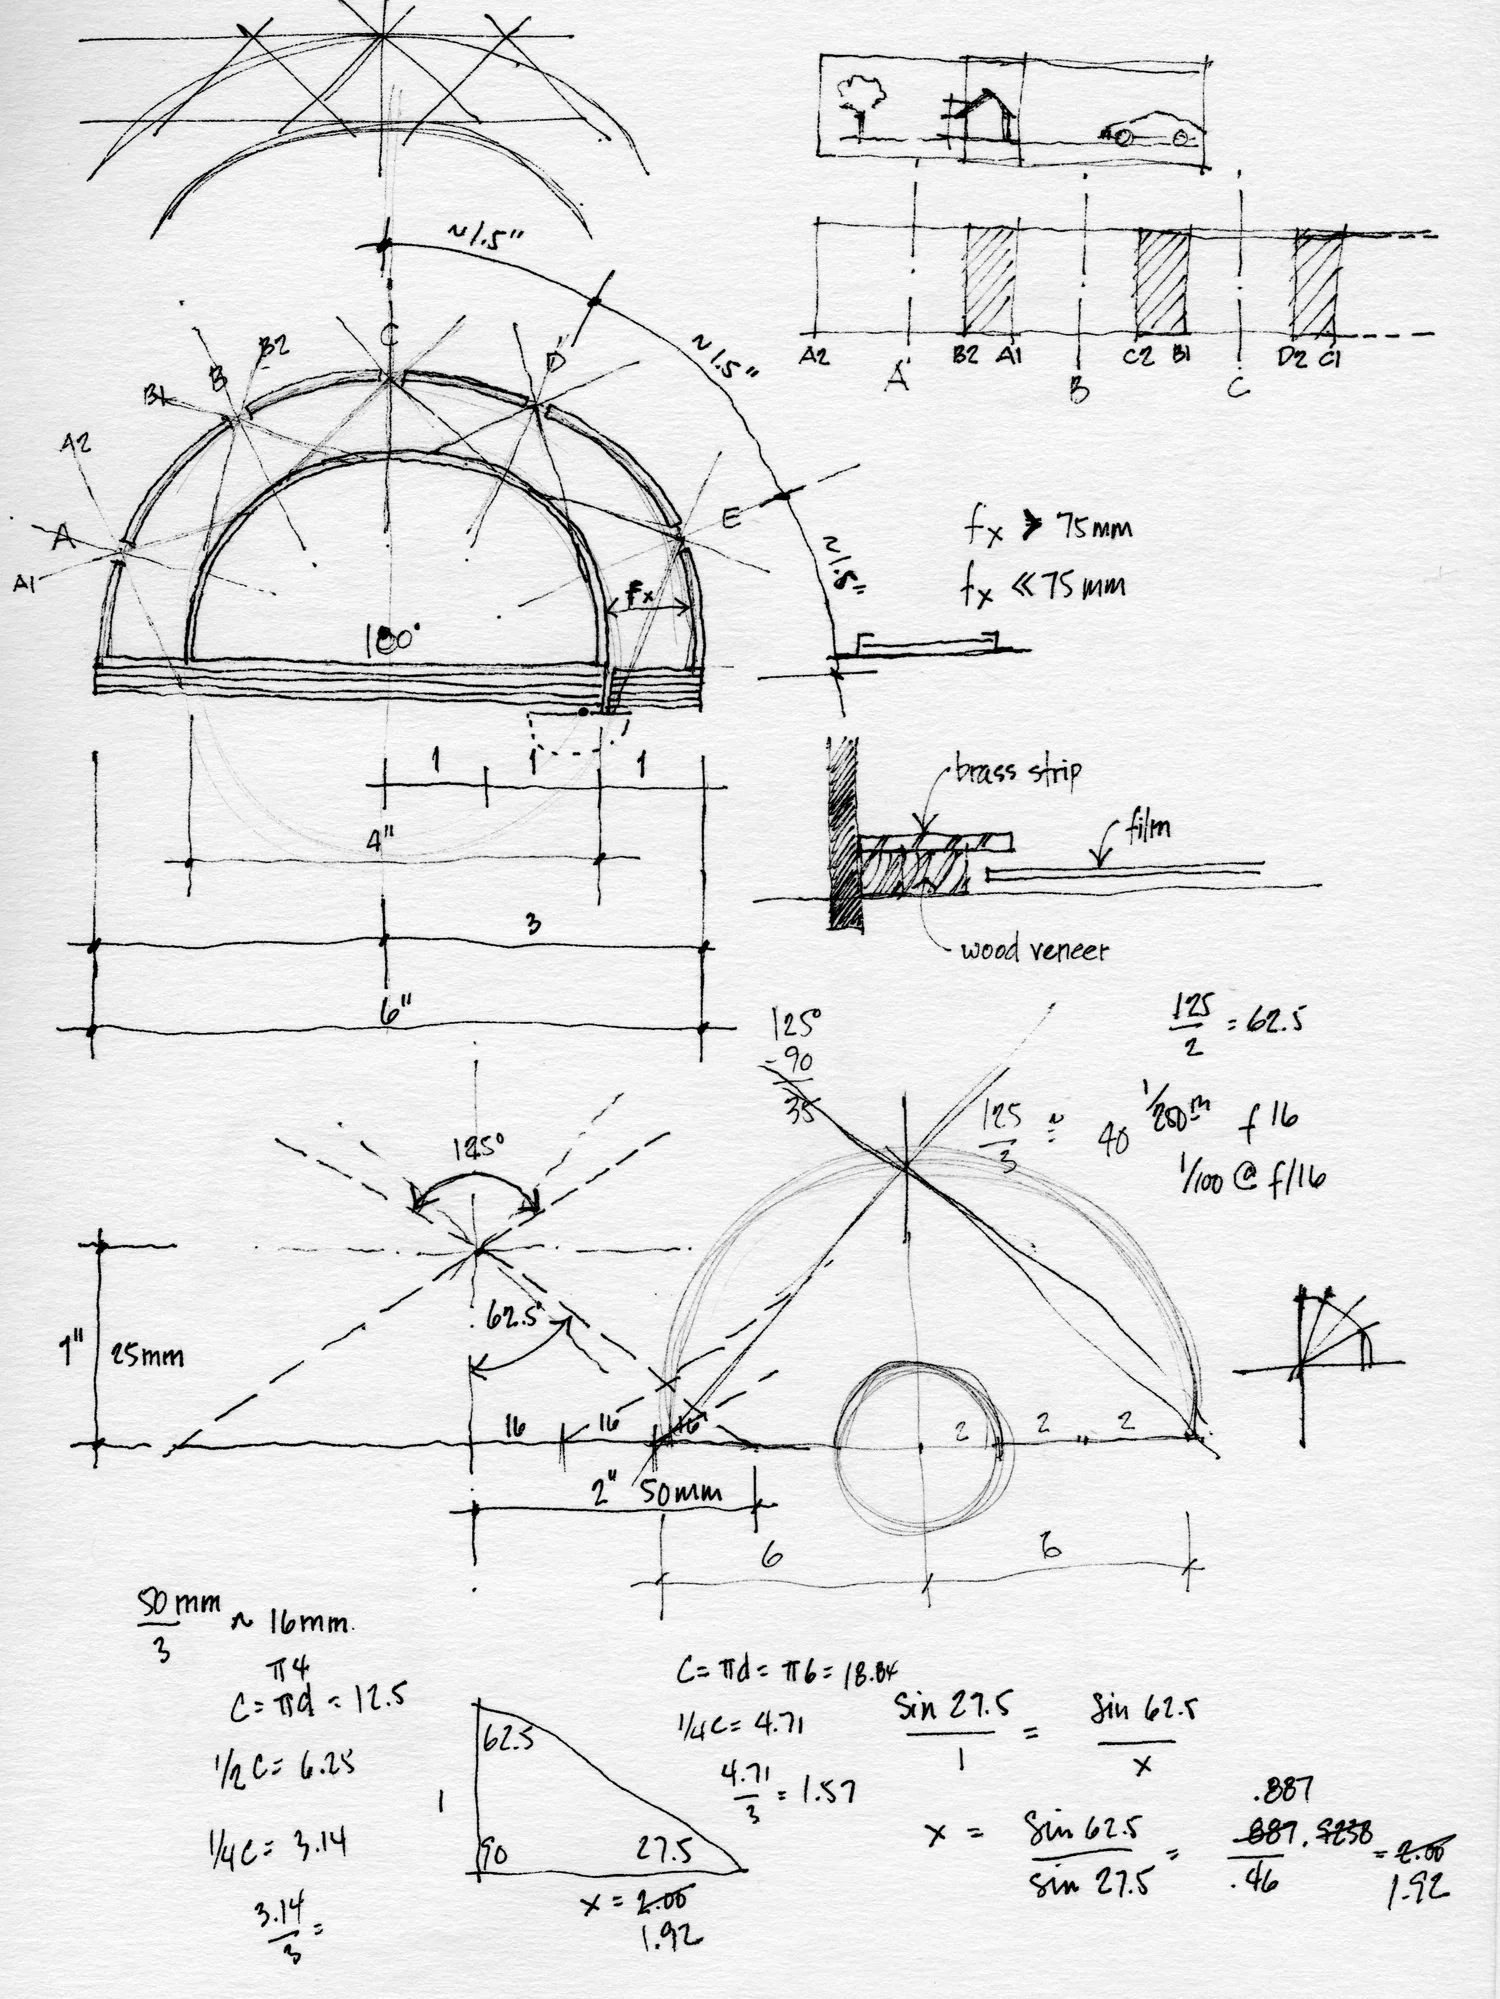 ~1.5"
~1.5"
~1.5"
A2 B2 A1 C2 B1 D2 C1
A B C
C
B2
B
B1
D
A2
A
A1
E
fx
180°
fx > 75mm
fx << 75mm
1 1 1
4"
3
6"
brass strip
film
wood veneer
125°
-90
35
125/2 = 62.5
125/3 ≈ 40
1/250 f16
1/100 @ f/16
125°
62.5
1" 25mm
16 16 16
2" 50mm
2 2 2
6 6
50mm/3 ~ 16mm.
π4
C = πd = 12.5
1/2 C = 6.25
1/4 C = 3.14
3.14/3 =
62.5
1
90 27.5
x = 2.00
1.92
C = πd = π6 = 18.84
1/4 C = 4.71
4.71/3 = 1.57
sin 27.5/1 = sin 62.5/x
.887
x = sin 62.5/sin 27.5 = .887/.46 = 2.00
1.92